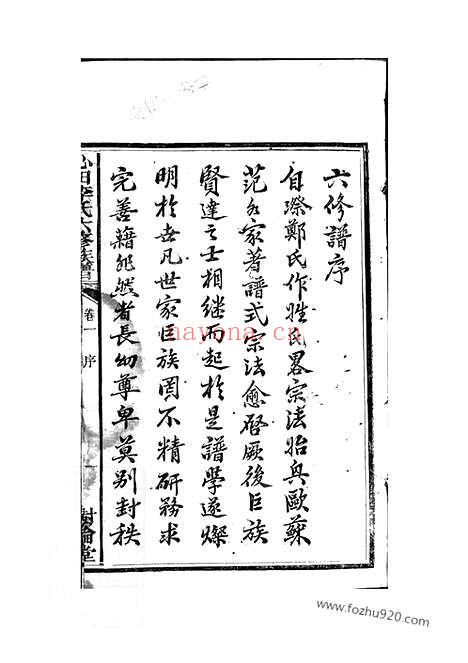 六修譜序
自漈鄭氏作姓氏畧宗法貽與歐蘇
范各家著譜式宗法愈啓厥後巨族
賢達之士相継而起於是譜學遂燦
明於世凡世家臣族罔不精研務求
完善藉非然者長幼尊卑莫別封秩
李氏六修族譜
卷一
序
樹倫堂
nayona.cn
www.fozhu920.com